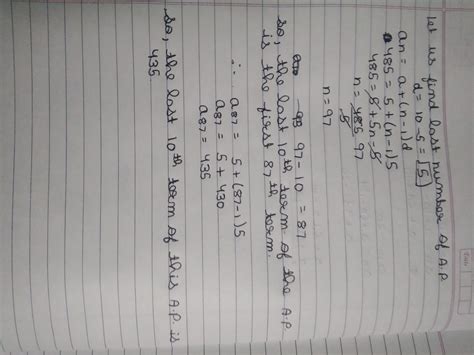 Let us find last number of A.P.
d = 10 - 5 = 5
an = a + (n-1)d
485 = 5 + (n-1)5
485 = 5 + 5n - 5
n = 485 97
5
n = 97
97 - 10 = 87
so, the last 10th term of the A.P.
is the first 87th term.
∴ a87 = 5 + (87-1)5
a87 = 5 + 430
a87 = 435
So, the last 10th term of this A.P. is
435.